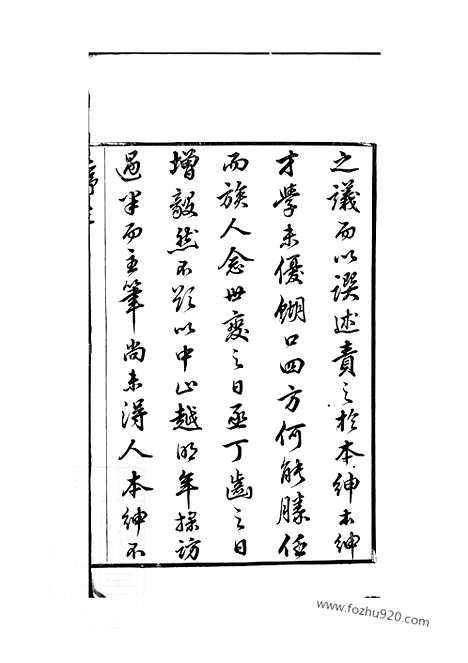 之議而以譔述責之於本紳本紳
才學未優餬口四方何能勝任
而族人念世變之日亟丁齒之日
增毅然不欲以中止越明年採訪
過半而主筆尚未得人本紳不
序
www.fozhu920.com